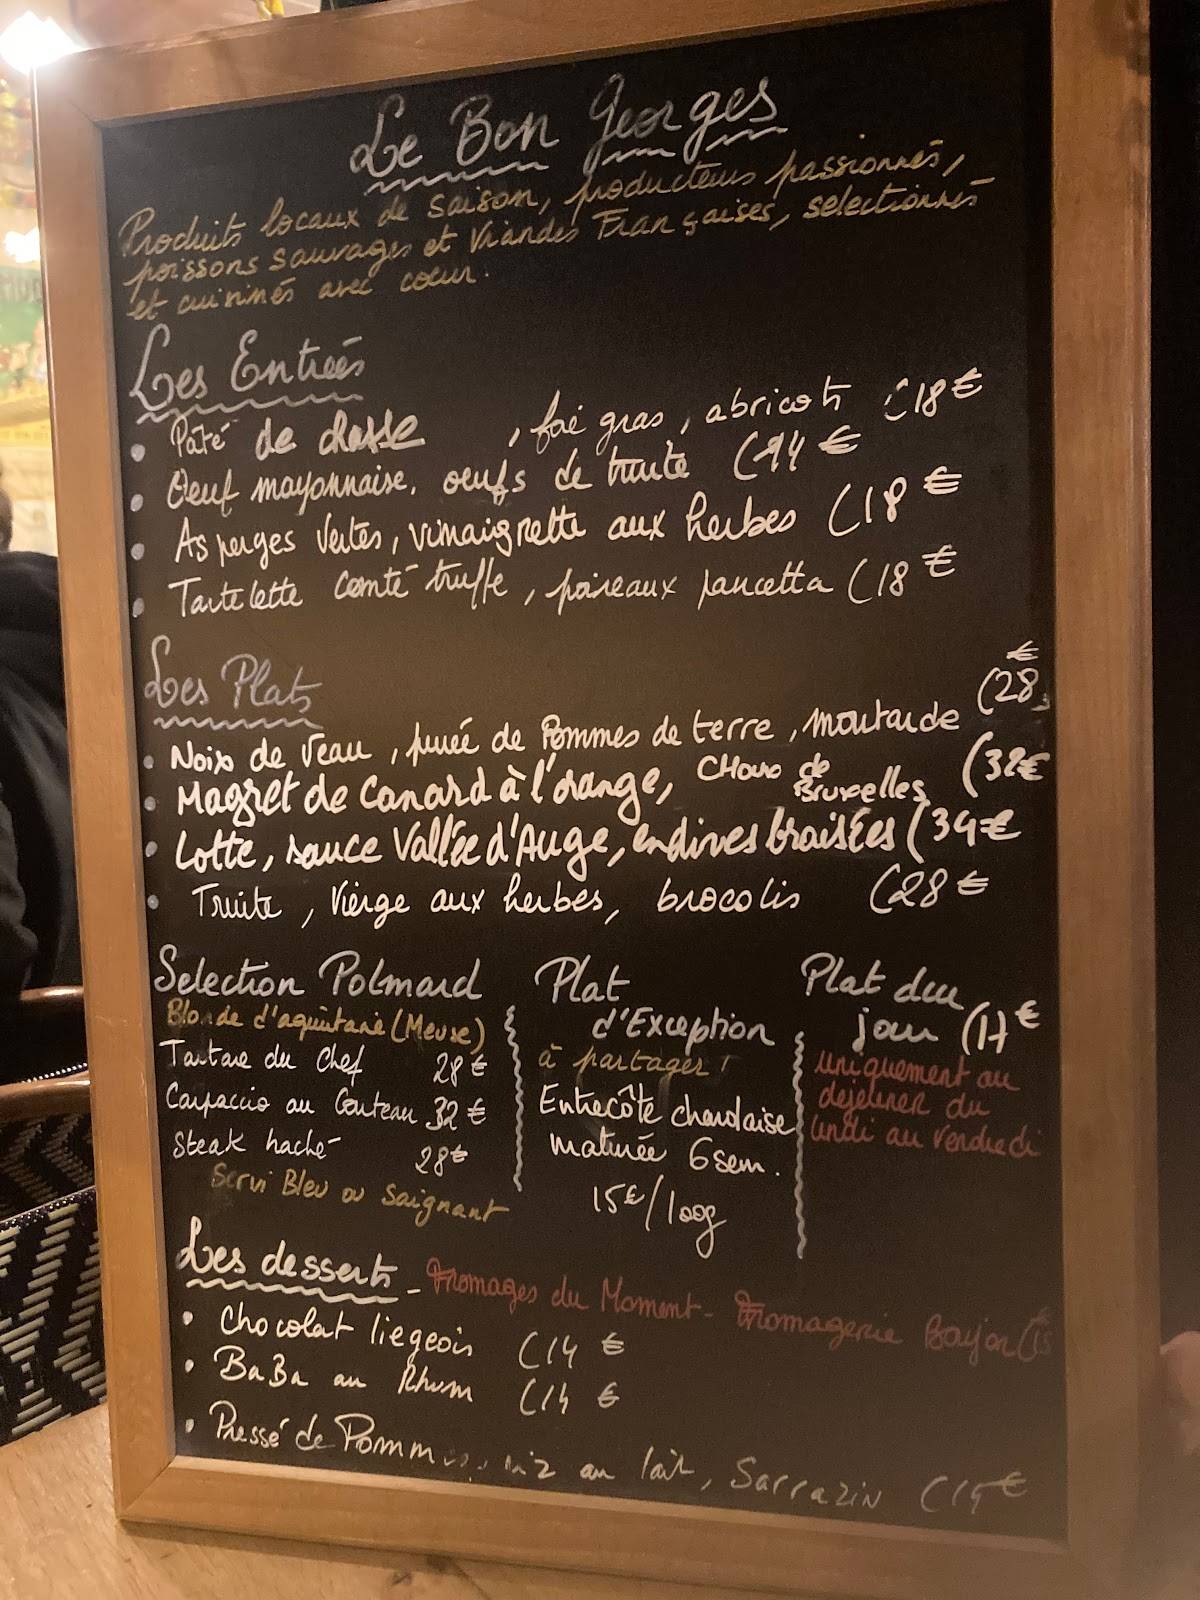 Le Bon Georges
Produits locaux de saison, producteurs passionnés,
poissons sauvages et Viandes Françaises, selectionnés
et cuisinés avec coeur.
Les Entrées
• Pâté de chasse , foie gras, abricots (18€
• Oeuf mayonnaise, oeufs de truite (14€
• Asperges Vertes, vinaigrette aux herbes (18€
• Tartelette comté truffe, poireaux pancetta (18€
Les Plats
• Noix de Veau, purée de Pommes de terre, moutarde (28€
• Magret de Canard à l'orange, Choux de Bruxelles (32€
• Lotte, sauce Vallée d'Auge, endives braisées (34€
• Truite, Vierge aux herbes, brocolis (28€
Selection Polmard
Blonde d'aquitaine (Meuse)
Tartare du Chef 28€
Carpaccio au Couteau 32€
Steak haché 28€
Servi Bleu ou Saignant
Plat
d'Exception
à partager !
Entrecôte charolaise
maturée 6 sem.
15€/100g
Plat du
jour (17€
uniquement au
dejeuner du
lundi au Vendredi
Les desserts - Fromages du Moment - Fromagerie Beaujon
• Chocolat liegeois (14€
• BaBa au Rhum (14€
• Pressé de Pommes, riz au lait, Sarrazin (14€